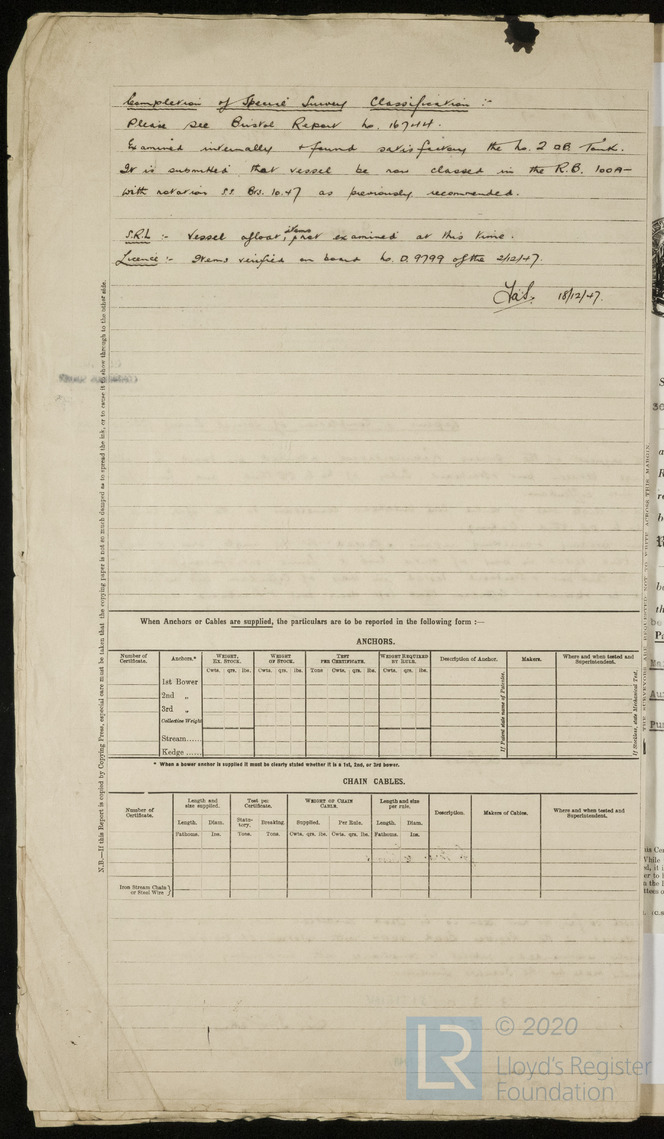 Completion of Special Survey Classification :-
Please see Bristol Report No. 16744.
Examined internally & found satisfactory the No. 2 OB Tank.
It is submitted that vessel be now classed in the R.B. 100A-
with notation SS Brs. 10.47 as previously recommended.
S.R.L :- Vessel afloat, items not examined at this time.
Licence :- Items verified on board No. D.9799 of the 2/12/47.
18/12/47.
N.B.—If this Report is copied by Copying Press, especial care must be taken that the copying paper is not so much damped as to spread the ink, or to cause it to show through to the other side.
When Anchors or Cables are supplied, the particulars are to be reported in the following form :—
ANCHORS.
Number of Certificate. Anchors.* Weight, Ex. Stock. Weight of Stock. Test per Certificate. Weight Required by Rule. Description of Anchor. Makers. Where and when tested and Superintendent.
Cwts. qrs. lbs. Cwts. qrs. lbs. Tons Cwts. qrs. lbs. Cwts. qrs. lbs.
1st Bower
2nd „
3rd „
Collective Weight
Stream......
Kedge ......
If Patent state name of Patentee.
If Stockless, state Mechanical Test.
* When a bower anchor is supplied it must be clearly stated whether it is a 1st, 2nd, or 3rd bower.
CHAIN CABLES.
Number of Certificate. Length and size supplied. Test per Certificate. Weight of Chain Cable. Length and size per rule. Description. Makers of Cables. Where and when tested and Superintendent.
Length. Diam. Statutory. Breaking. Supplied. Per Rule. Length. Diam.
Fathoms. Ins. Tons. Tons. Cwts. qrs. lbs. Cwts. qrs. lbs. Fathoms. Ins.
Iron Stream Chain or Steel Wire }
LR © 2020
Lloyd's Register
Foundation